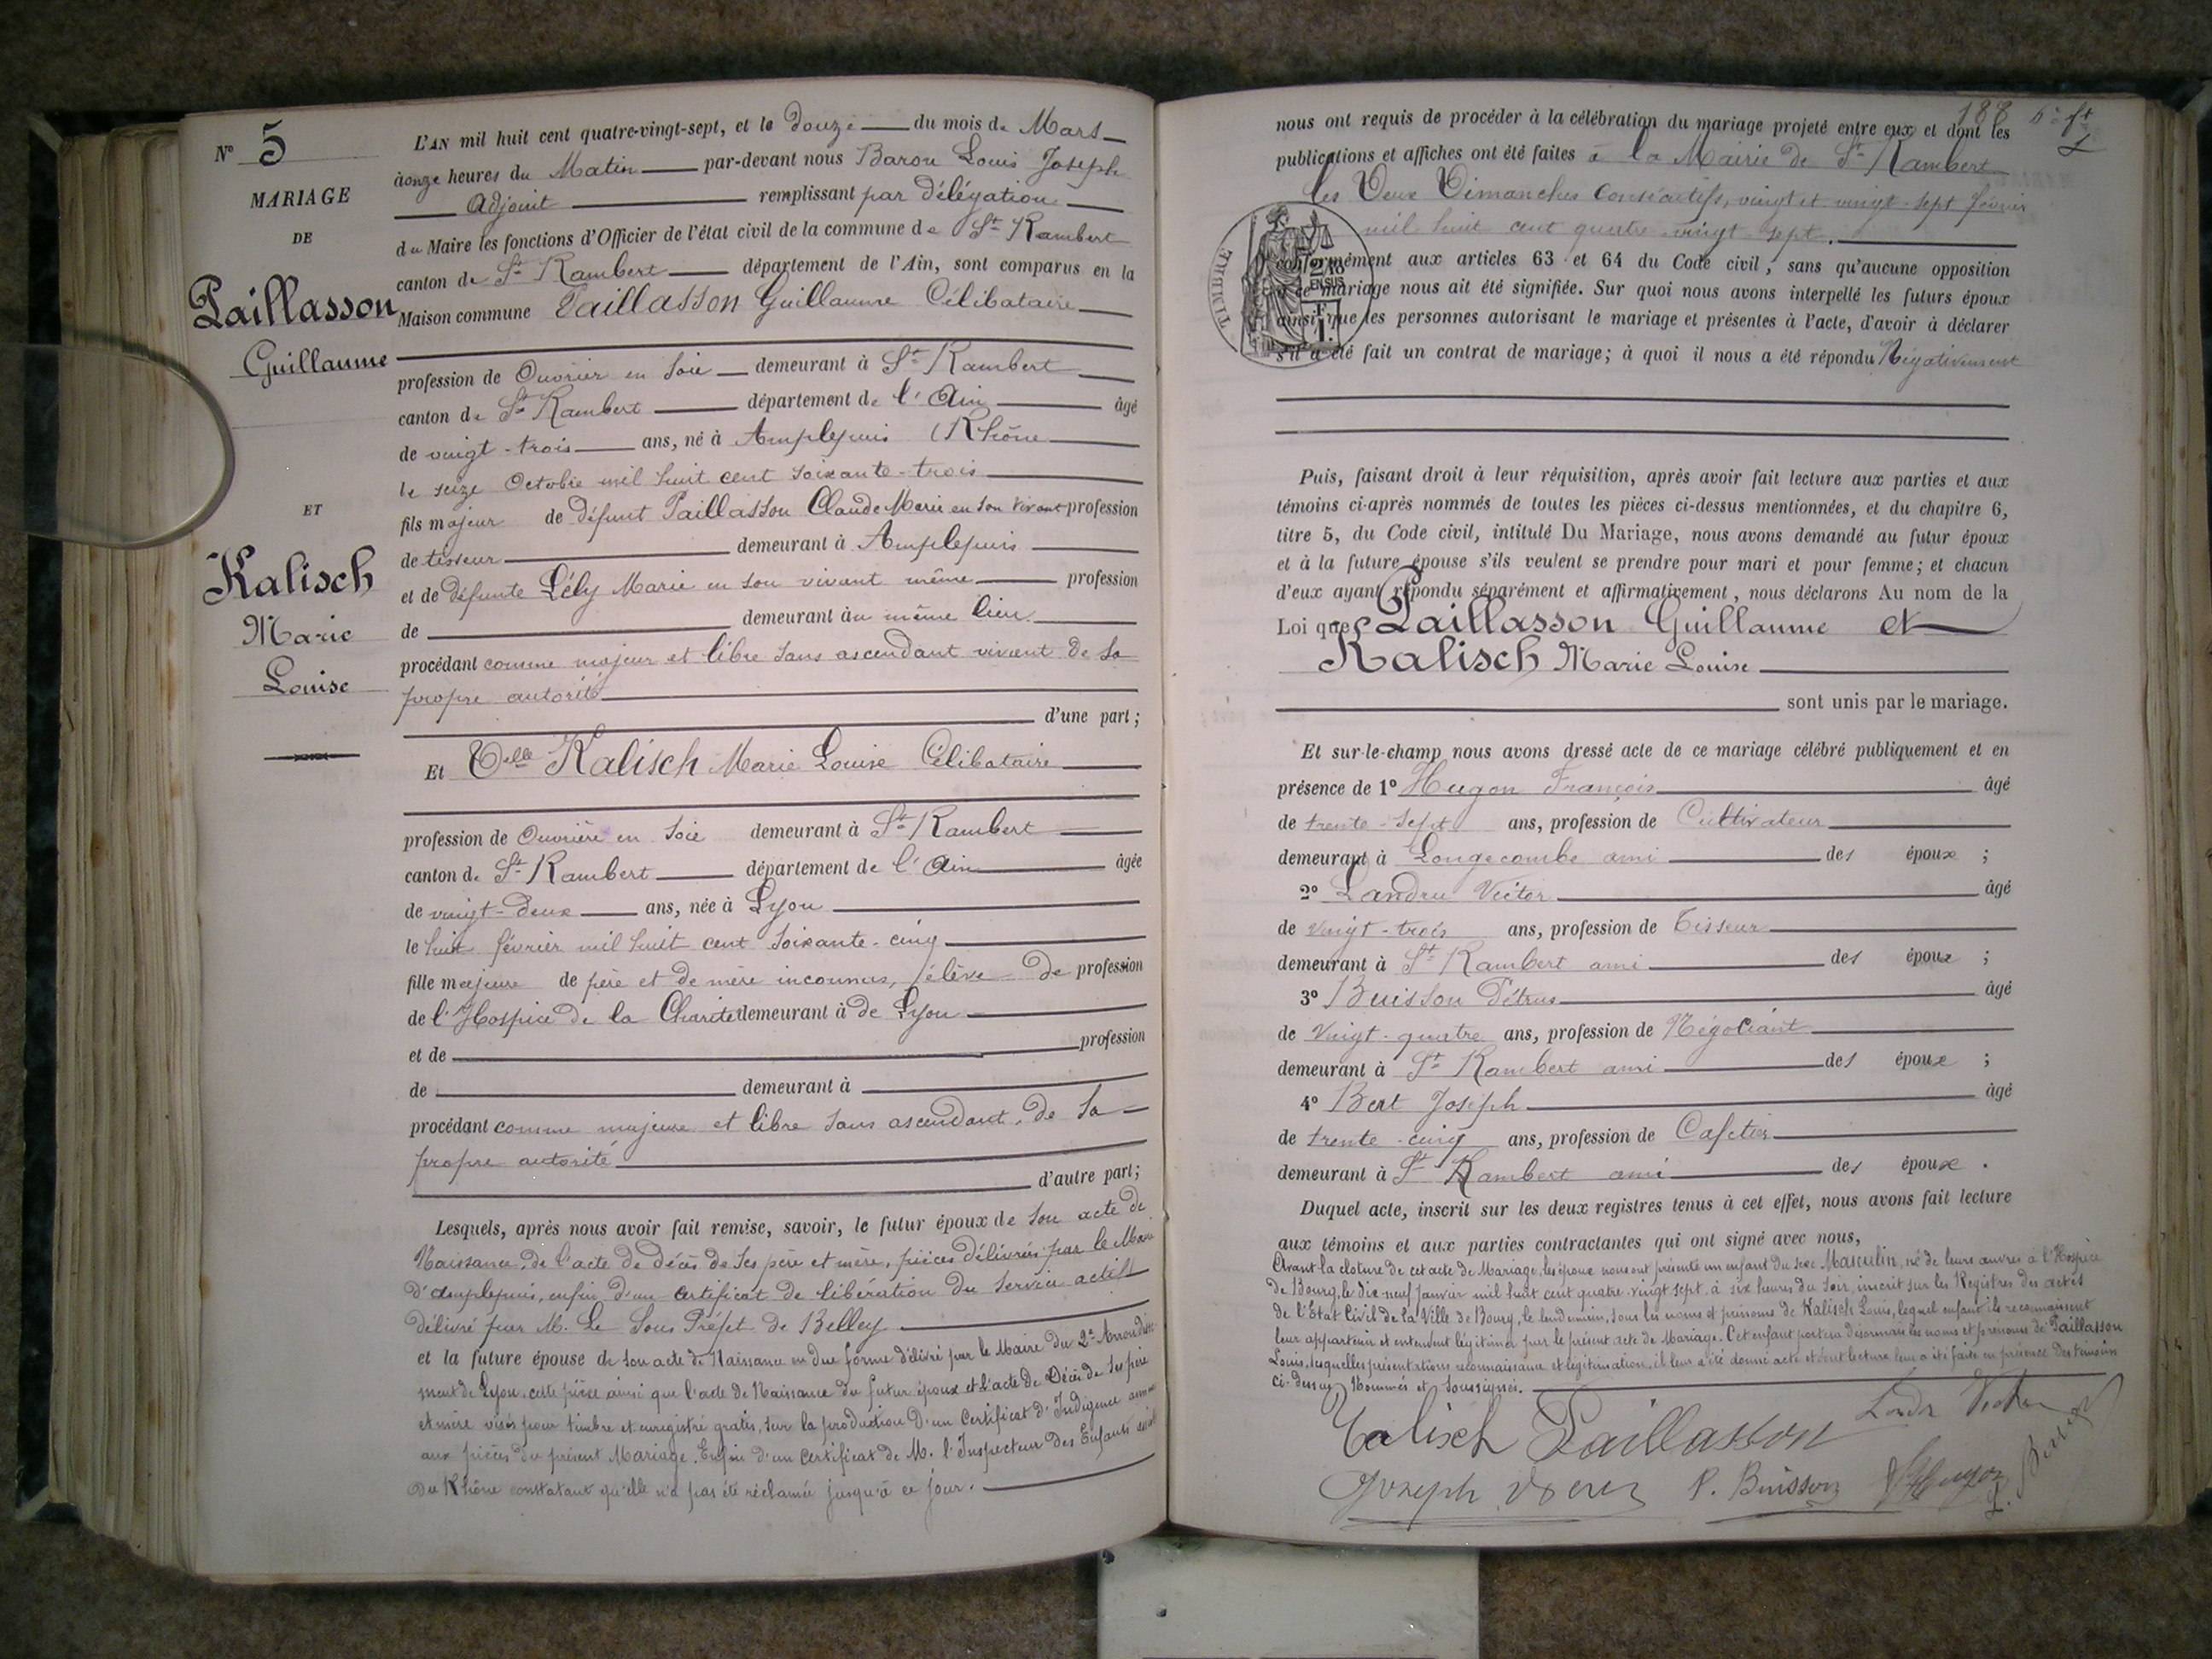 N° 5
MARIAGE
DE
Paillasson
Guillaume
ET
Kalisch
Marie
Louise
L'AN mil huit cent quatre-vingt-sept, et le douze du mois de Mars
à onze heures du Matin par-devant nous Baron Louis Joseph
Adjoint remplissant par délégation
du Maire les fonctions d'Officier de l'état civil de la commune de St Rambert
canton de St Rambert département de l'Ain, sont comparus en la
Maison commune Paillasson Guillaume Célibataire
profession de Ouvrier en soie demeurant à St Rambert
canton de St Rambert département de l'Ain âgé
de vingt-trois ans, né à Amplepuis (Rhône
le seize Octobre mil huit cent soixante-trois
fils majeur de défunt Paillasson Claude Marie en son vivant profession
de tisseur demeurant à Amplepuis
et de défunte Lély Marie en son vivant même profession
de demeurant au même lieu
procédant comme majeur et libre sans ascendant vivant de sa
propre autorité
d'une part ;
Et Delle Kalisch Marie Louise Célibataire
profession de Ouvrière en soie demeurant à St Rambert
canton de St Rambert département de l'Ain âgée
de vingt-deux ans, née à Lyon
le huit février mil huit cent soixante-cinq
fille majeure de père et de mère inconnus, élève de profession
de l'Hospice de la Charité demeurant à de Lyon
et de profession
de demeurant à
procédant comme majeure et libre sans ascendant, de sa
propre autorité
d'autre part ;
Lesquels, après nous avoir fait remise, savoir, le futur époux de son acte de
Naissance, de l'acte de décès de ses père et mère, pièces délivrées par le Maire
d'Amplepuis, enfin d'un certificat de libération du service actif
délivré par M. Le Sous Préfet de Belley
et la future épouse de son acte de Naissance en due forme délivré par le Maire du 2e Arrondisse
ment de Lyon, cette pièce ainsi que l'acte de Naissance du futur époux et l'acte de Décès de ses père
et mère visés pour timbre et enregistré gratis, sur la production d'un Certificat d'Indigence annexé
aux pièces du présent Mariage. Enfin d'un Certificat de M. l'Inspecteur des Enfants
du Rhône constatant qu'elle n'a pas été réclamée jusqu'à ce jour.
nous ont requis de procéder à la célébration du mariage projeté entre eux et dont les
publications et affiches ont été faites à la Mairie de St Rambert
les Deux Dimanches Consécutifs, vingt et vingt-sept février
mil huit cent quatre vingt sept.
TIMBRE
conformément aux articles 63 et 64 du Code civil, sans qu'aucune opposition
à ce mariage nous ait été signifiée. Sur quoi nous avons interpellé les futurs époux
ainsi que les personnes autorisant le mariage et présentes à l'acte, d'avoir à déclarer
s'il a été fait un contrat de mariage; à quoi il nous a été répondu Négativement
Puis, faisant droit à leur réquisition, après avoir fait lecture aux parties et aux
témoins ci-après nommés de toutes les pièces ci-dessus mentionnées, et du chapitre 6,
titre 5, du Code civil, intitulé Du Mariage, nous avons demandé au futur époux
et à la future épouse s'ils veulent se prendre pour mari et pour femme; et chacun
d'eux ayant répondu séparément et affirmativement, nous déclarons Au nom de la
Loi que Paillasson Guillaume et
Kalisch Marie Louise
sont unis par le mariage.
Et sur-le-champ nous avons dressé acte de ce mariage célébré publiquement et en
présence de 1° Hugon François âgé
de trente-sept ans, profession de Cultivateur
demeurant à Longecombe ami des époux ;
2° Landru Victor âgé
de vingt-trois ans, profession de Tisseur
demeurant à St Rambert ami des époux ;
3° Buisson Pétrus âgé
de vingt-quatre ans, profession de Négociant
demeurant à St Rambert ami des époux ;
4° Bert Joseph âgé
de trente-cinq ans, profession de Cafetier
demeurant à St Rambert ami des époux .
Duquel acte, inscrit sur les deux registres tenus à cet effet, nous avons fait lecture
aux témoins et aux parties contractantes qui ont signé avec nous,
Avant la cloture de cet acte de Mariage, les époux nous ont présenté un enfant du sexe Masculin, né de leurs œuvres à l'Hospice
de Bourg, le dix neuf janvier mil huit cent quatre-vingt sept, à six heures du soir, inscrit sur les Registres des actes
de l'Etat Civil de la Ville de Bourg, le lendemain, sous les noms et prénoms de Kalisch Louis, lequel enfant ils reconnaissent
leur appartenir et entendent légitimer par le présent acte de Mariage. Cet enfant portera désormais les noms et prénoms de Paillasson
Louis, lesquelles présentations reconnaissance et légitimation, il leur a été donné acte et dont lecture leur a été faite en présence des témoins
ci-dessus Nommés et soussignés.
Kalisch Paillasson Victor
Joseph Bert P. Buisson Hugon